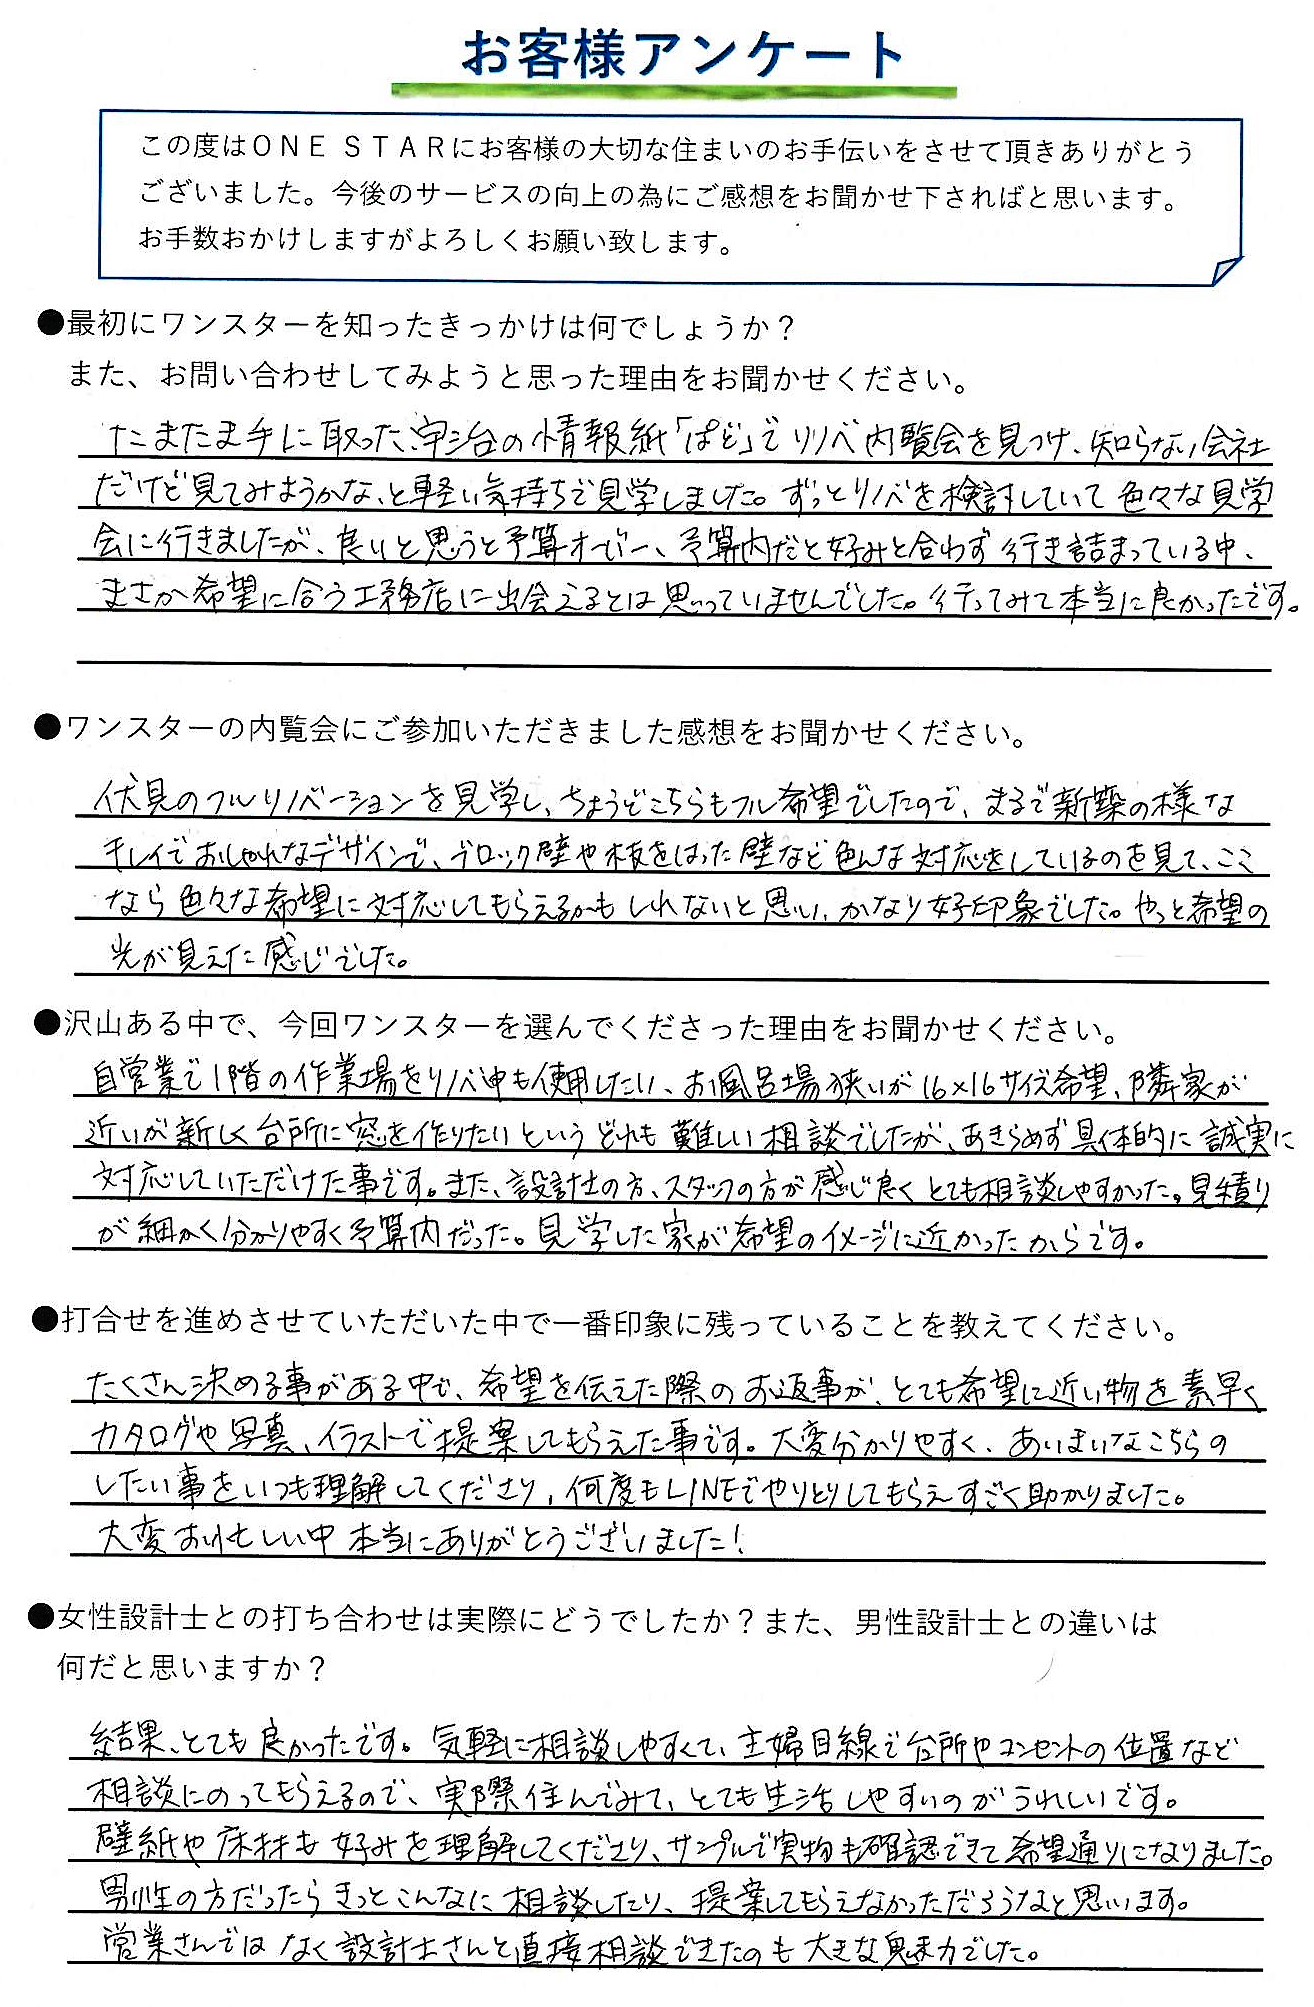 お客様アンケート
この度はＯＮＥ ＳＴＡＲにお客様の大切な住まいのお手伝いをさせて頂きありがとう
ございました。今後のサービスの向上の為にご感想をお聞かせ下さればと思います。
お手数おかけしますがよろしくお願い致します。
●最初にワンスターを知ったきっかけは何でしょうか？
また、お問い合わせしてみようと思った理由をお聞かせください。
たまたま手に取った、宇治の情報紙「ぱど」でリノベ内覧会を見つけ、知らない会社
だけど見てみようかな、と軽い気持ちで見学しました。ずっとリノベを検討していて色々な見学
会に行きましたが、良いと思うと予算オーバー、予算内だと好みと合わず行き詰まっている中、
まさか希望に合う工務店に出会えるとは思っていませんでした。行ってみて本当に良かったです。
●ワンスターの内覧会にご参加いただきました感想をお聞かせください。
伏見のフルリノベーションを見学し、ちょうどこちらもフル希望でしたので、まるで新築の様な
キレイでおしゃれなデザインで、ブロック壁や板をはった壁など色んな対応をしているのを見て、ここ
なら色々な希望に対応してもらえるかもしれないと思い、かなり好印象でした。やっと希望の
光が見えた感じでした。
●沢山ある中で、今回ワンスターを選んでくださった理由をお聞かせください。
自営業で1階の作業場をリノベ中も使用したい、お風呂場狭いが16×16サイズ希望、隣家が
近いが新しく台所に窓を作りたいというどれも難しい相談でしたが、あきらめず具体的に誠実に
対応していただけた事です。また、設計士の方、スタッフの方が感じ良くとても相談しやすかった。見積り
が細かく分かりやすく予算内だった。見学した家が希望のイメージに近かったからです。
●打合せを進めさせていただいた中で一番印象に残っていることを教えてください。
たくさん決める事がある中で、希望を伝えた際のお返事が、とても希望に近い物を素早く
カタログや写真、イラストで提案してもらえた事です。大変分かりやすく、あいまいなこちらの
したい事をいつも理解してくださり、何度もLINEでやりとりしてもらえすごく助かりました。
大変お忙しい中本当にありがとうございました！
●女性設計士との打ち合わせは実際にどうでしたか？また、男性設計士との違いは
何だと思いますか？
結果、とても良かったです。気軽に相談しやすくて、主婦目線で台所やコンセントの位置など
相談にのってもらえるので、実際住んでみて、とても生活しやすいのがうれしいです。
壁紙や床材も好みを理解してくださり、サンプルで実物も確認できて希望通りになりました。
男性の方だったらきっとこんなに相談したり、提案してもらえなかっただろうなと思います。
営業さんではなく設計士さんと直接相談できたのも大きな魅力でした。